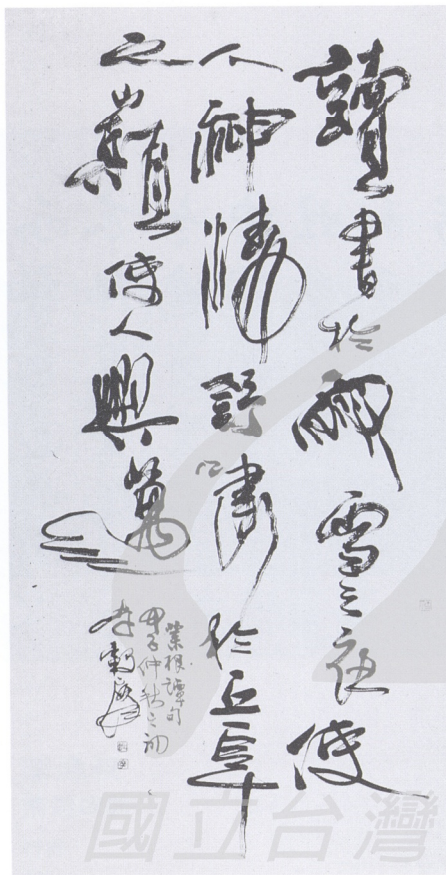 讀書於雨雪之夜使
人神清舒嘯於丘阜
之巔使人興邁
菜根譚句
甲子仲秋之初
李轂摩
國立台灣